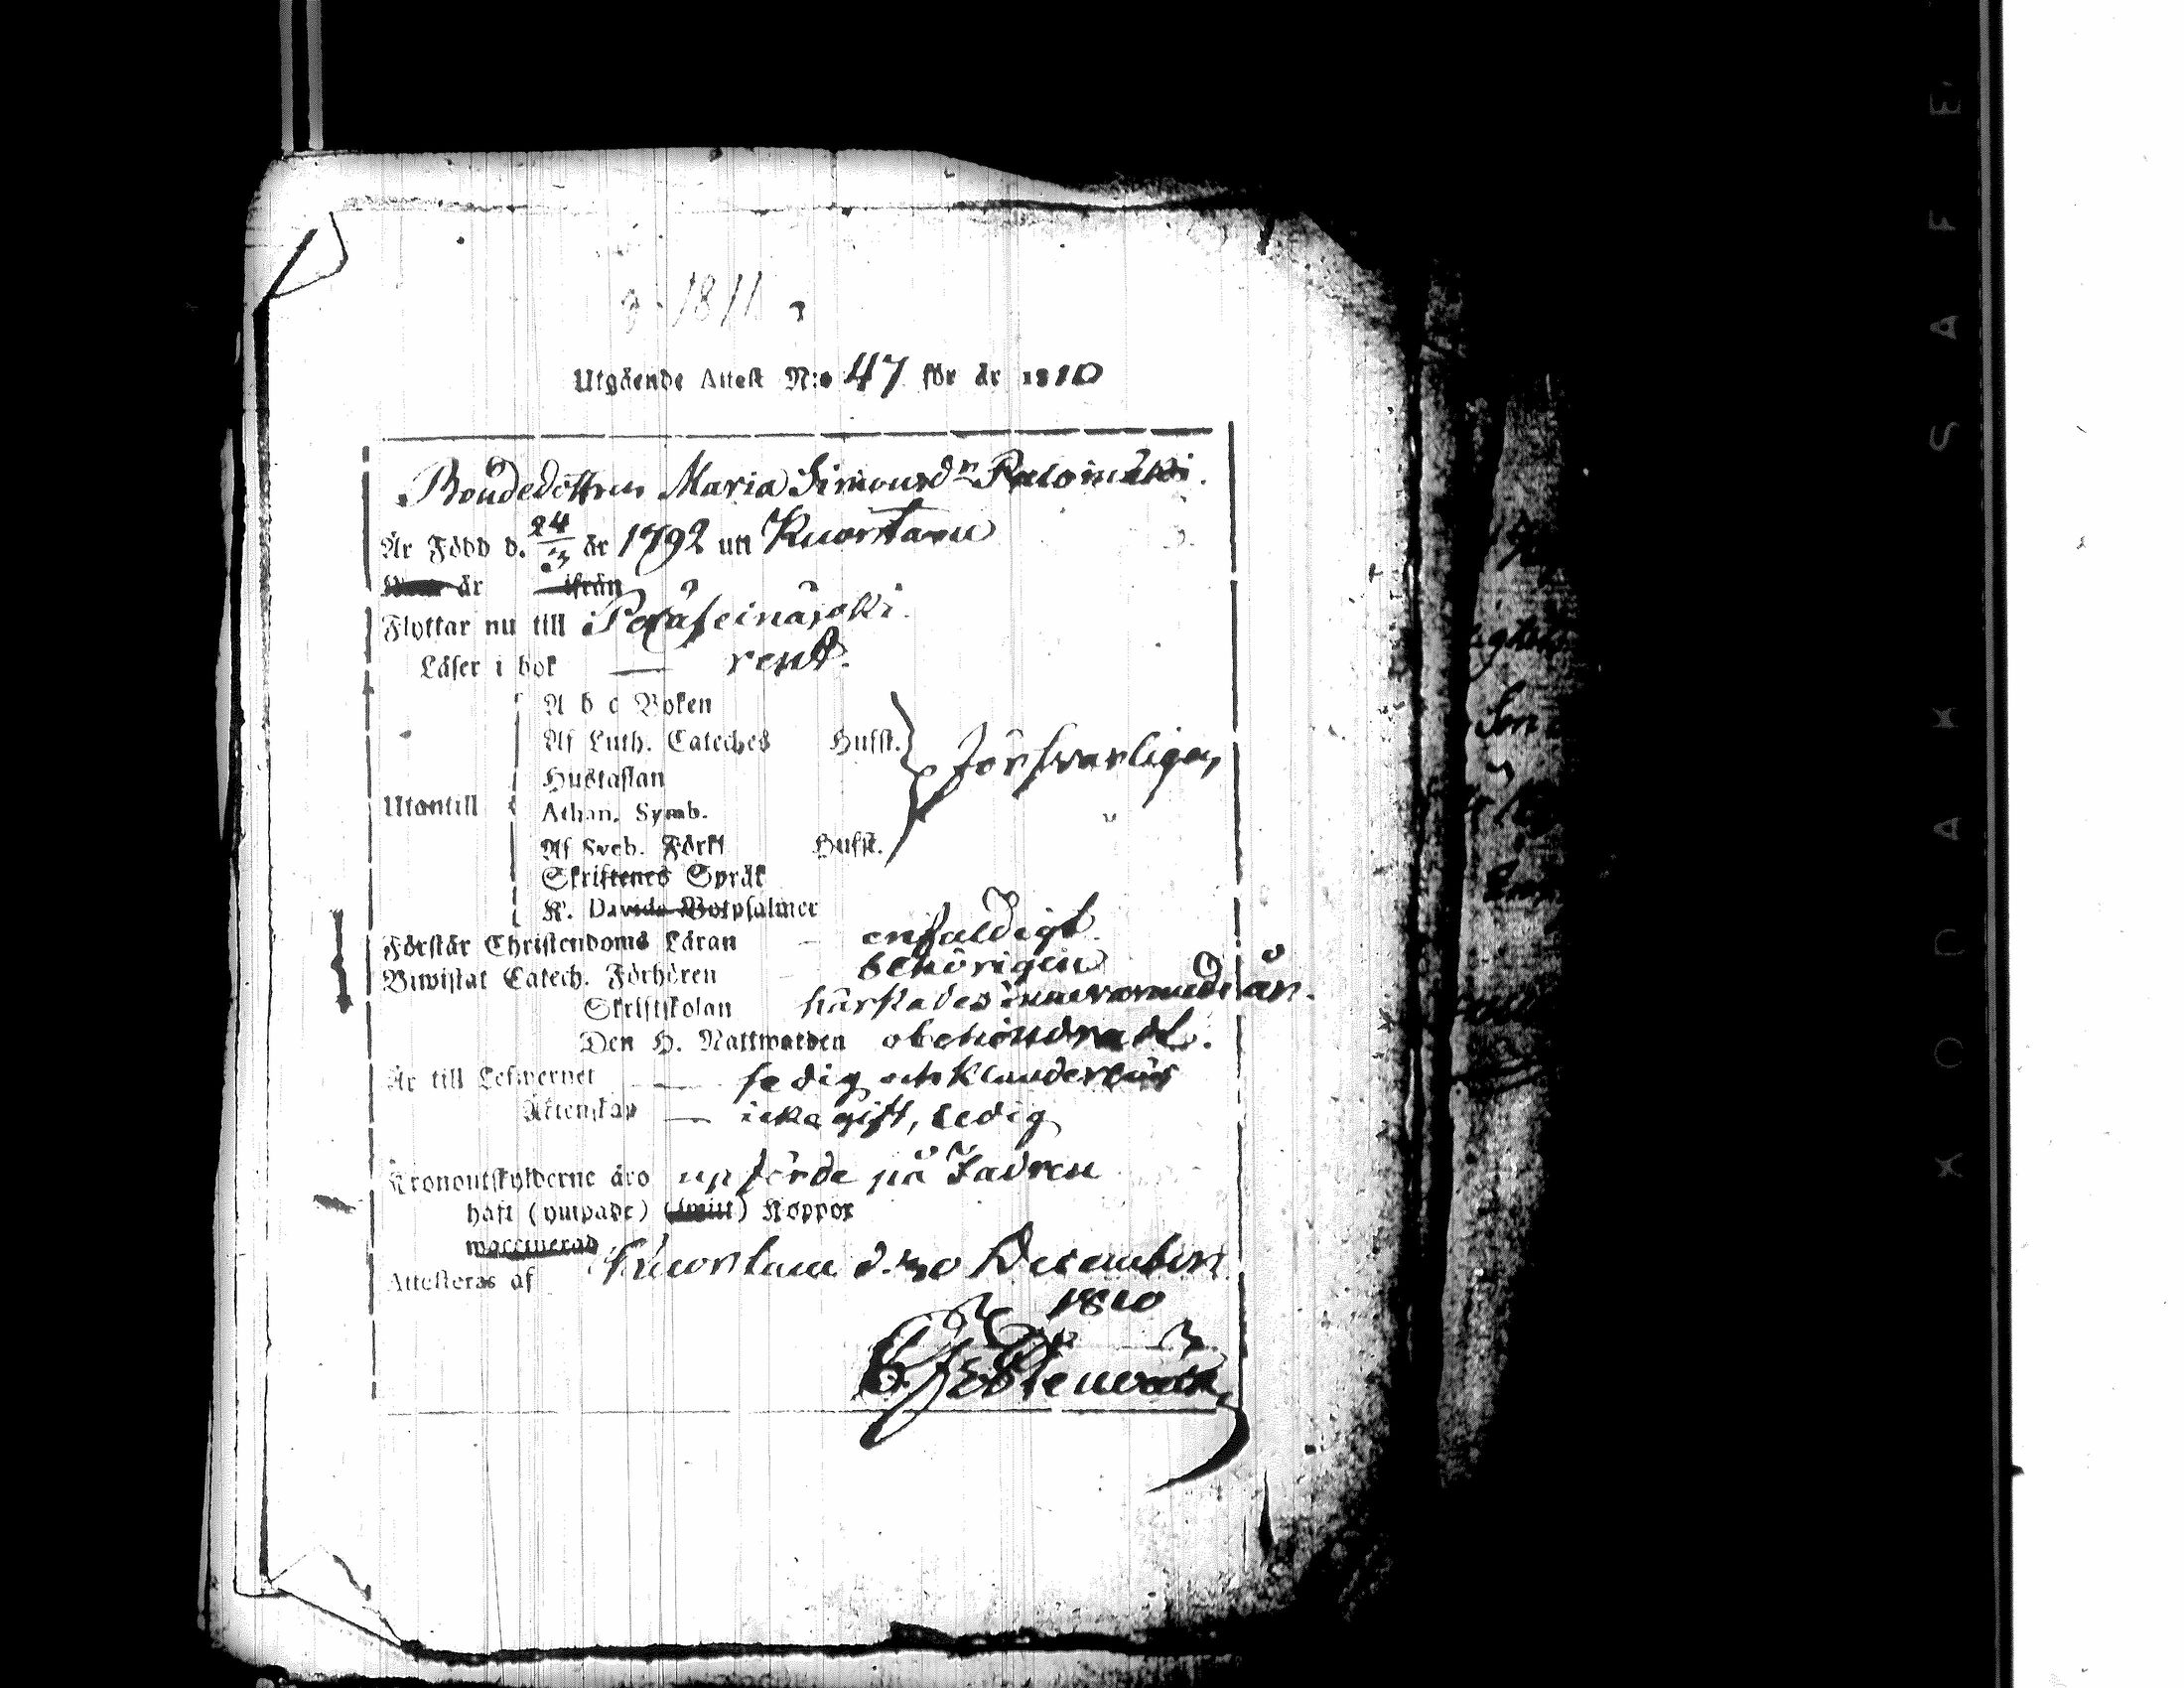 1811
Utgående Attest N:o 47 för år 1810
Bondedottren Maria Simonsdr Palomäki.
Är Född d. 24/3 år 1792 uti Kuortane
år ifrån
Flyttar nu till Peräseinäjoki.
Läser i bok — rent.
A b c Boken
Af Luth. Cateches Hufst. försvarligen
Hustaflan
Utantill
Athan. Symb.
Af Sveb. Förkl Hufst.
Skriftenes Språk
K. Davids Botpsalmer
Förstår Christendoms Läran — enfaldigt.
Biwistat Catech. Förhören — behörigen
Skriftskolan härstädes innevarande år.
Den H. Nattwarden obehindradt.
Är till Lefwernet — sedig och klanderlös
Äktenskap — icke gift, ledig
Kronoutskylderne äro upförde på Fadren
haft (ympade) Koppor
waccinerad
Attesteras af Kuortane d. 30 December
1810